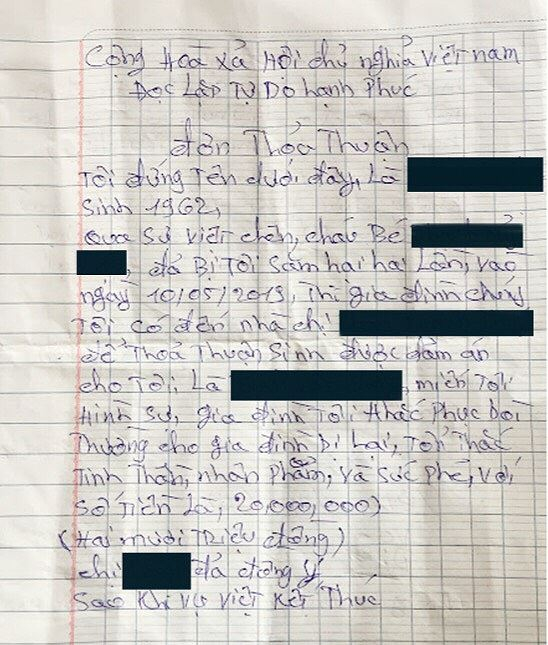 Cộng Hoà xả Hội chủ nghỉa việt nam
Đọc Lập Tự Do hạnh Phúc
đơn Thỏa Thuận
Tôi đứng Tên dưới đây, Là
Sinh 1962,
Qua sự việt trên, cháu Bé
đả Bị Tôi Sâm hai hai Lần, vào
ngày 10/05/2019, Thì gia đình chúng
Tôi có đến nhà chị
để Thoả Thuận, Sinh được dảm án
cho Tôi, Là miển Tôi
Hình sự, gia đình Tôi khắc Phục bồi
Thường cho gia đình bị hại, Tổn Thấc
Tinh Thần, nhân Phẩm, và sức Phẻ, với
số Tiền Là, 20,000,000)
(Hai mươi Triệu đồng)
chị đả đồng ý
Sao khi vụ việt kết Thúc